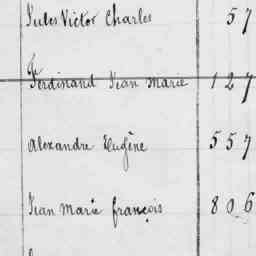 Jules Victor Charles 57
Ferdinand Jean Marie 127
Alexandre Eugène 557
Jean Marie françois 806